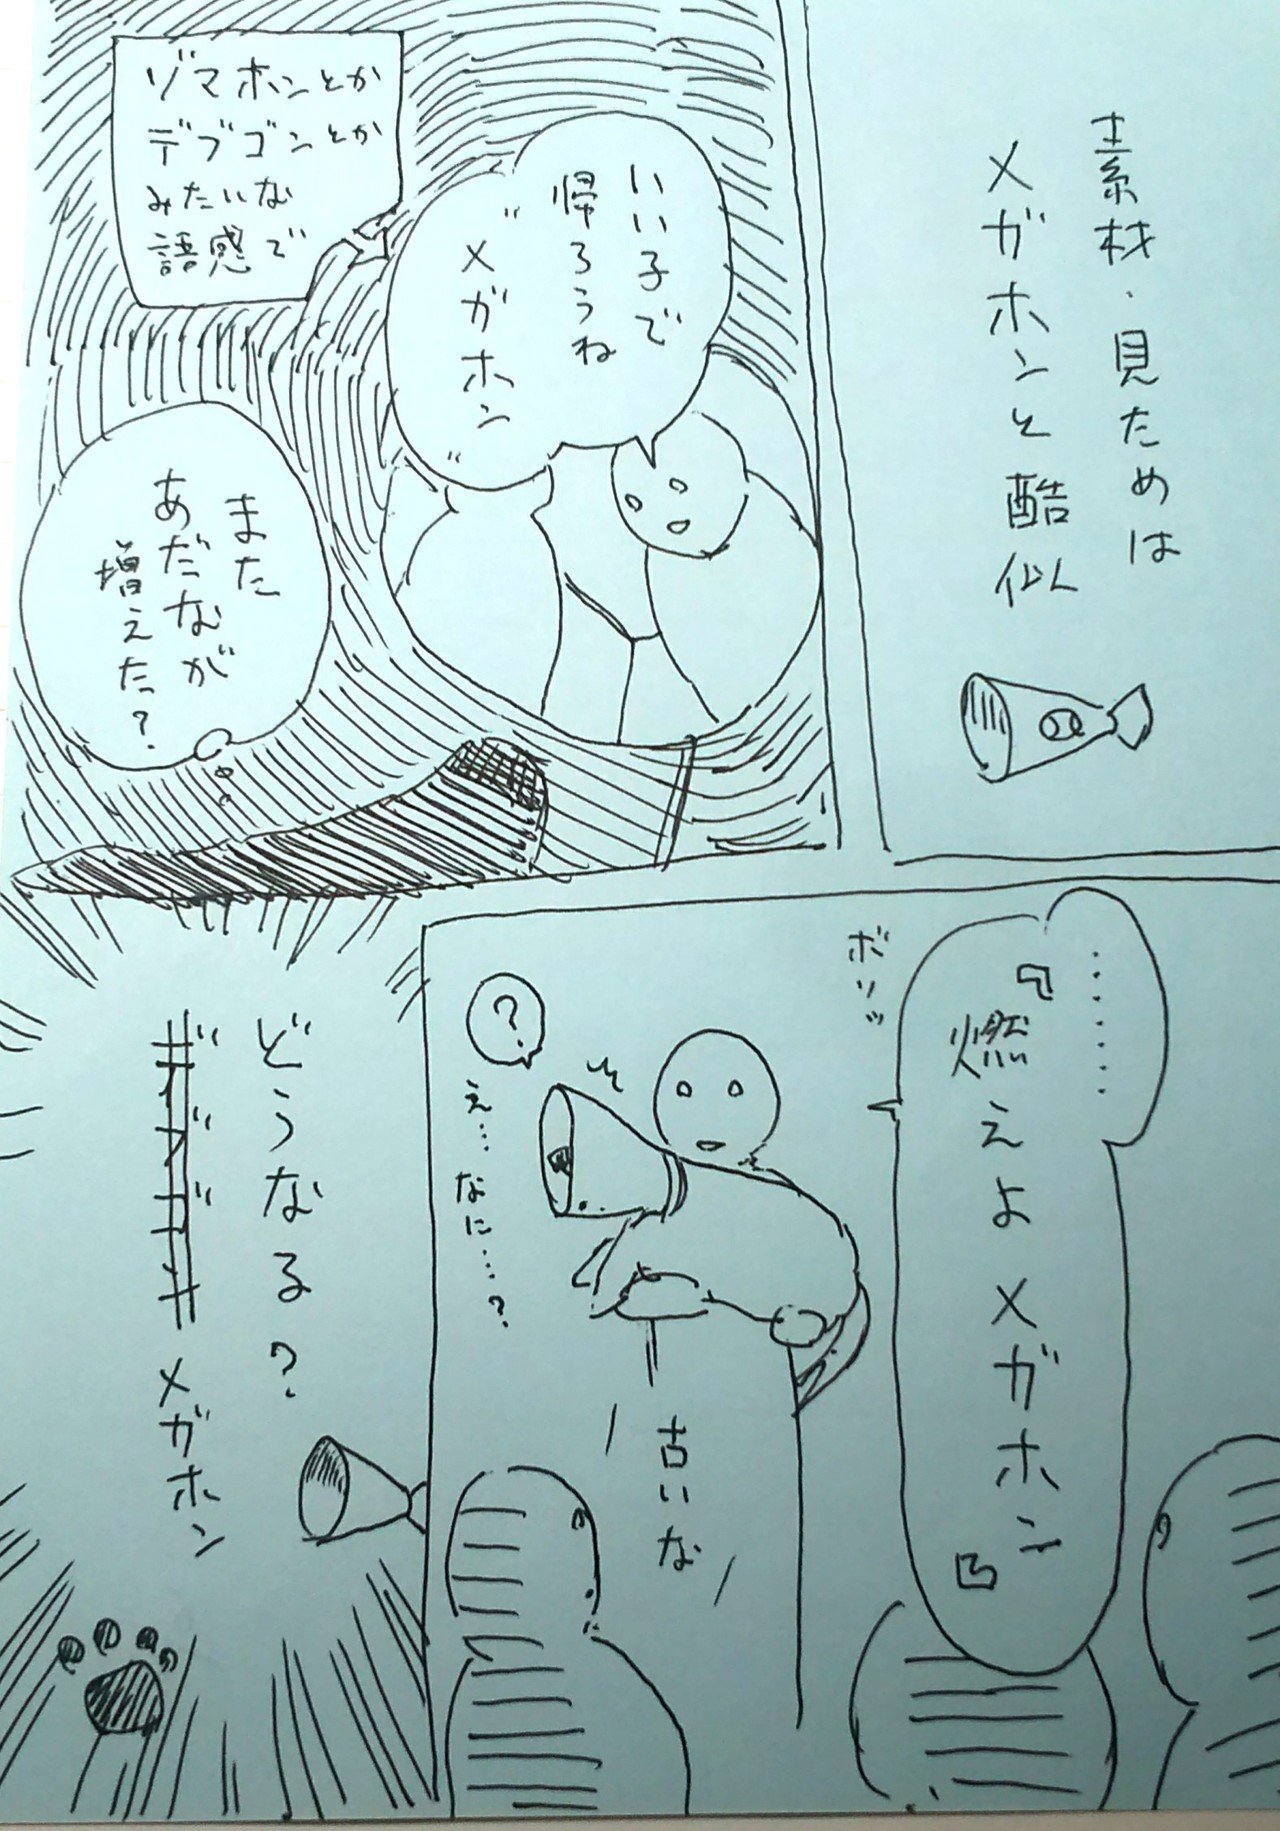 素材・見ためは
メガホンと酷似
いい子で
帰ろうね
"メガホン"
ゾマホンとか
デブゴンとか
みたいな
語感で
また
あだなが
増えた?
………
『燃えよメガホン』
ボソッ
?
え…なに…?
古いな
どうなる?
デブゴン メガホン